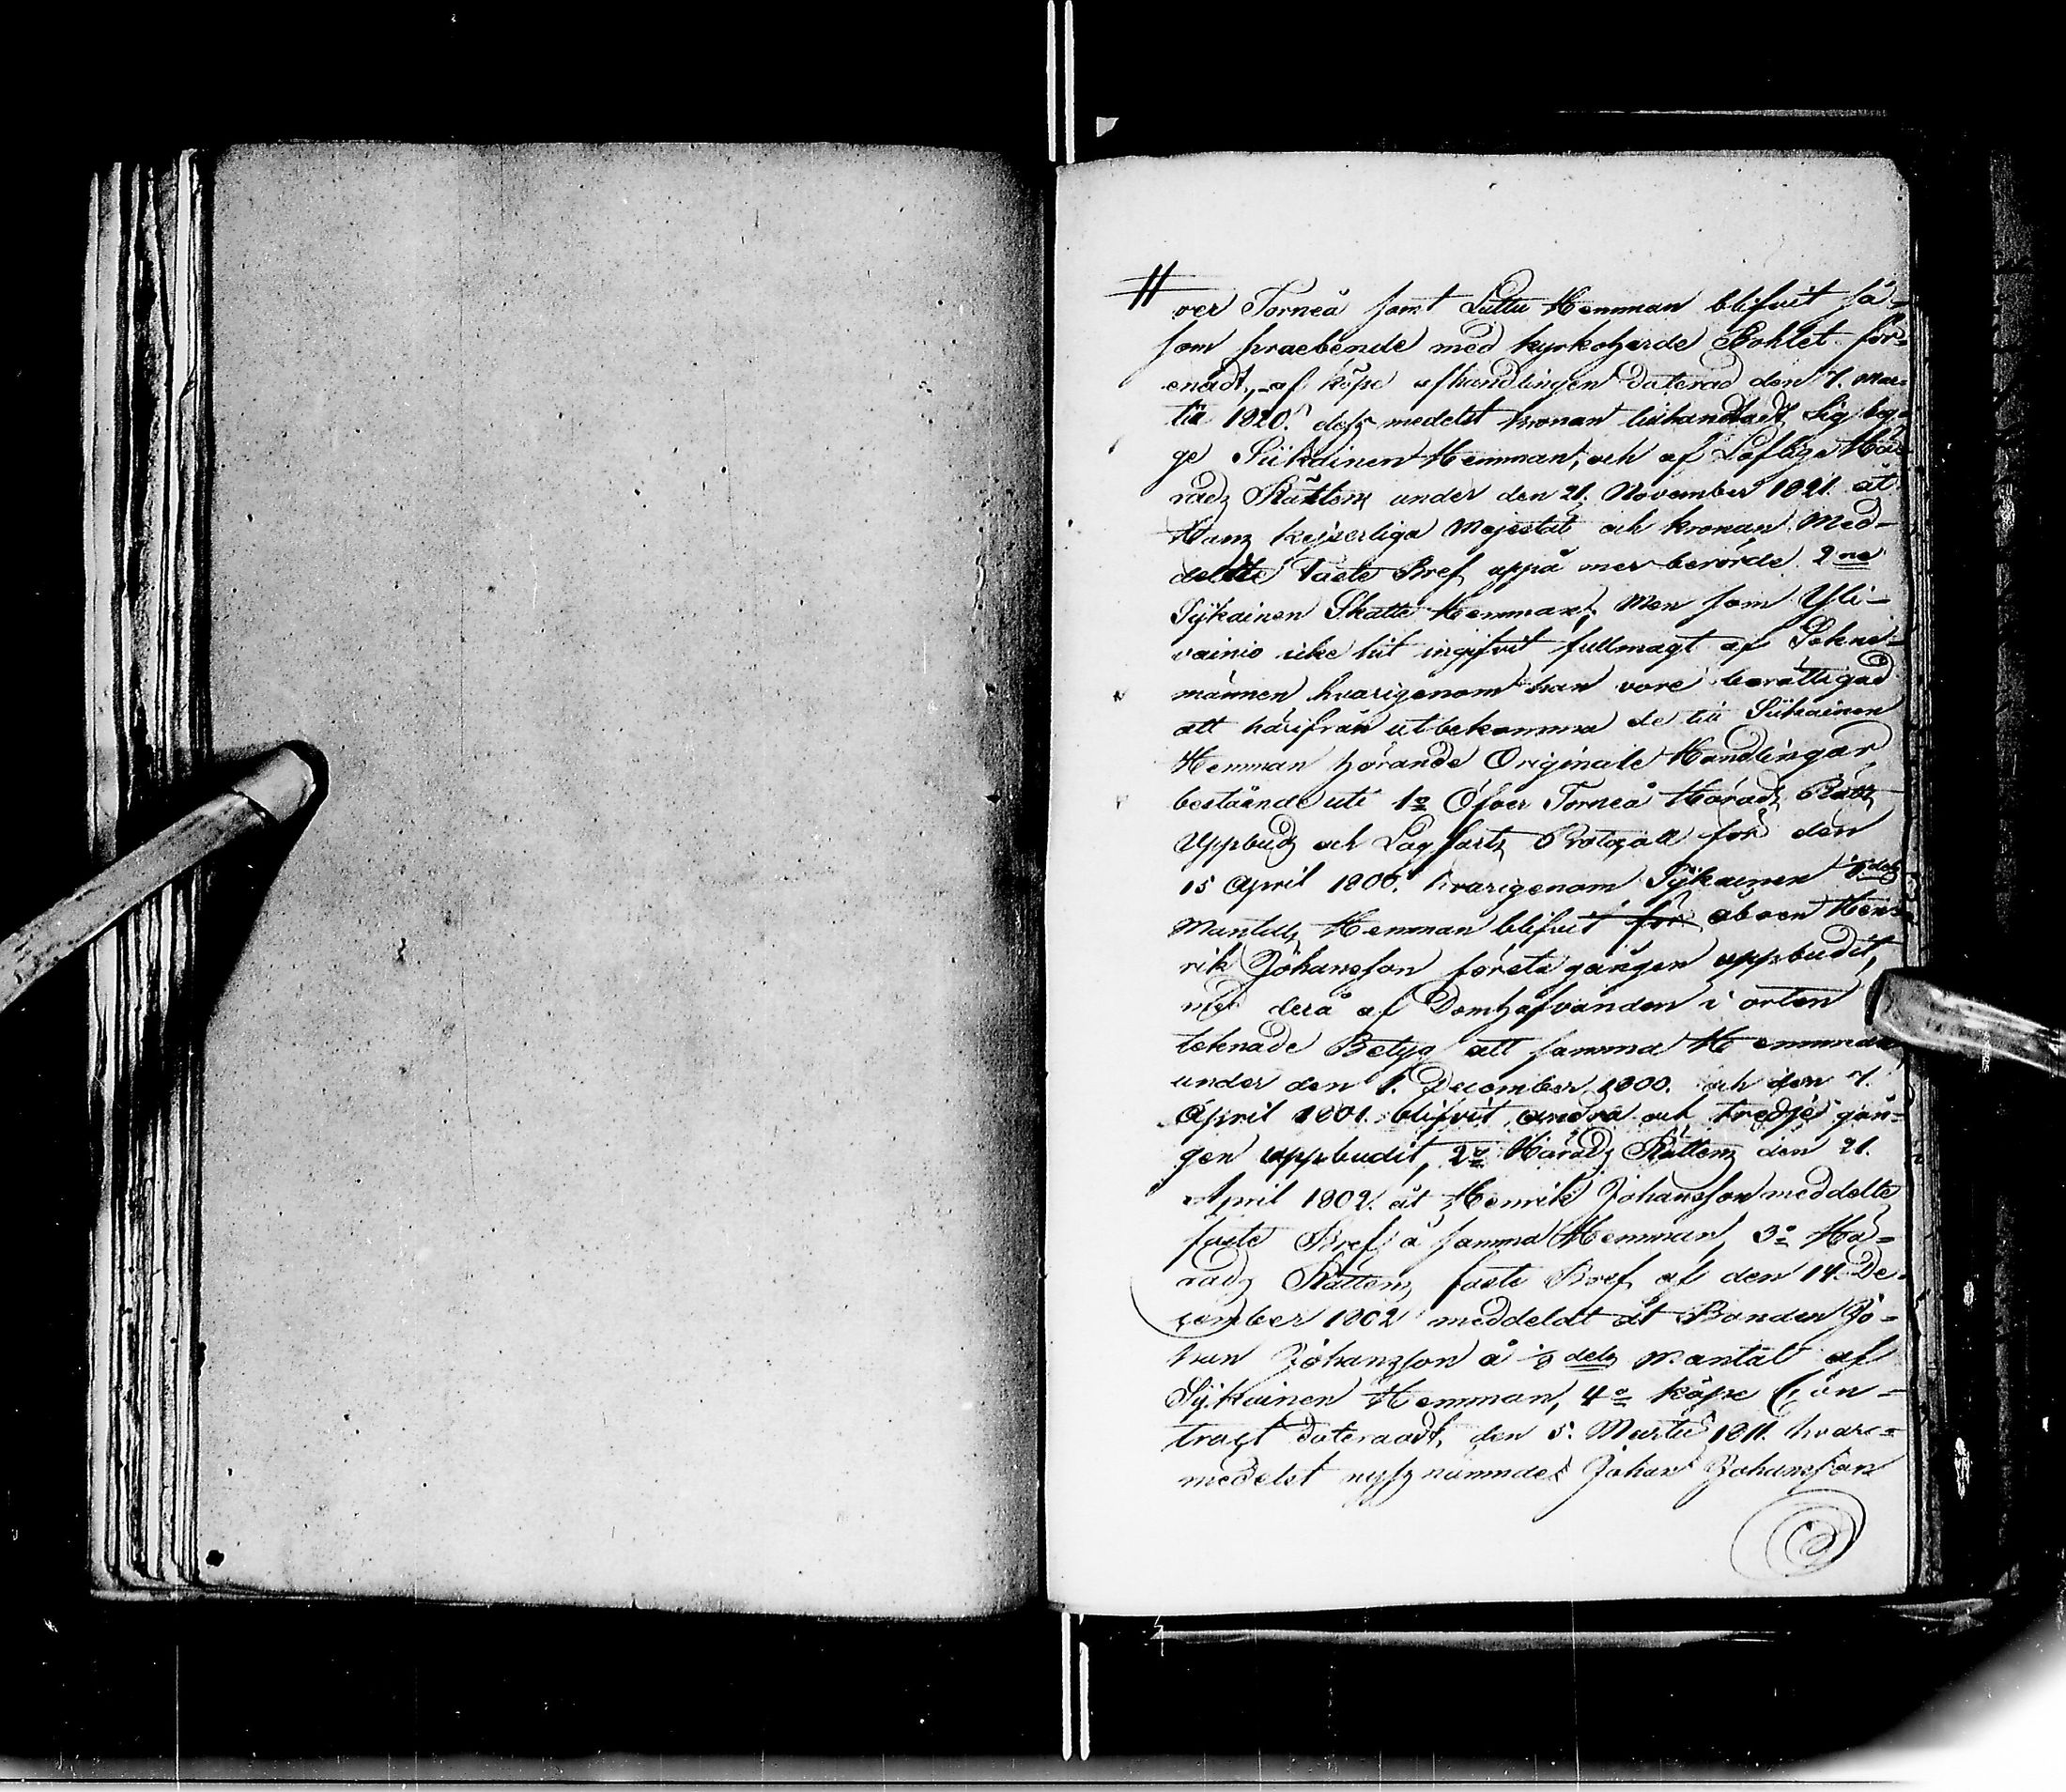 ver Torneå samt Luttu Hemman blifvit så-
som praebende med kyrkoherde Bohlet för-
enadt, af köpe afhandlingen daterad den 7. Mar-
tii 1820. dess medelst kronan tillhandladt Sig
ge Siikainen Hemman, och af Loflige Hä-
rads Rättens under den 21. November 1821. åt
Hans kejserliga Majestät och kronan Med-
delte Faste Bref uppå mer berörde 2ne
Sijkainen Skatte Hemman, Men som Yli-
vainio icke hit ingifvit fullmagt af Sokne-
männen hvarigenom han vore berättigad
att härifrån utbekomma de till Siikainen
Hemman hörande Originale Handlingar,
bestående uti 1o Öfver Torneå Härads Rätts
Uppbuds och Lagfarts Protocoll för den
15 April 1800. hvarigenom Sijkainen dels
Mantals Hemman blifvit för åboen Hen-
rik Johansson första gången uppbudit,
med derå af Domhafvanden i orten
teknade Betyg att samma Hemman
under den 1. December 1800. och den 7.
April 1801. blifvit andra och tredje gån-
gen uppbudit, 2o Härads Rättens den 21.
April 1802. åt Henrik Johansson meddelte
faste Bref å samma Hemman, 3o Hä-
rads Rättens faste Bref af den 14. De-
cember 1802 meddeldt åt Bonden Jo-
han Johansson å 1/8 dels mantal af
Sijkainen Hemman, 4o köpe Con-
tract dateradt, den 5. Martii 1811. hvar-
medelst nyss nämnde Johan Johansson